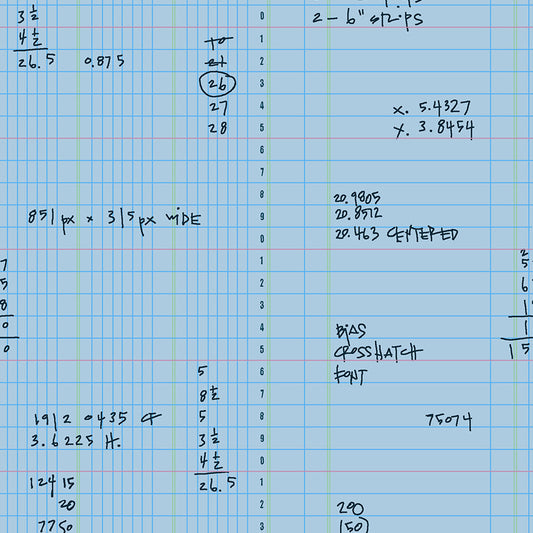 3 1/2
4 1/2
26.5 0.875
2 - 6" strips
26
27
28
x. 5.4327
y. 3.8454
851px x 315px WIDE
20.9805
20.8512
20.463 CENTERED
BIAS
CROSSHATCH
FONT
75074
5
8 1/2
5
3 1/2
4 1/2
26.5
1912 0435 CF
3.6225 H.
124 15
20
7750
200
150
0
1
2
3
4
5
6
7
8
9
0
1
2
3
4
5
6
7
8
9
0
1
2
3
7
5
8
0
0
2
5
6
1
1
1 5